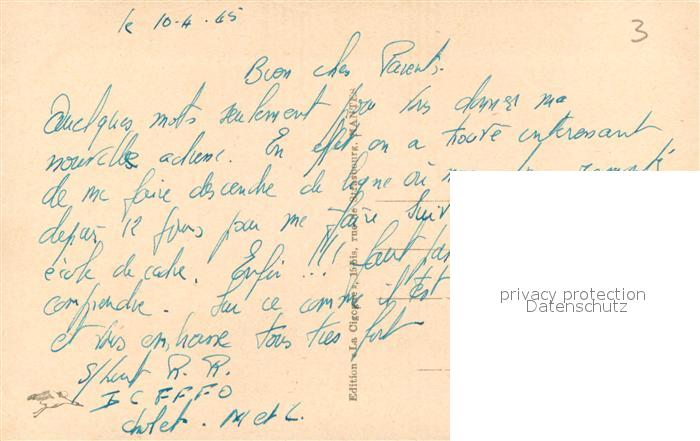 le 10-4-45
3
Bien chers Parents.
Quelques mots seulement pour vous donner ma
nouvelle adresse. En effet on a trouvé intéressant
de me faire descendre de ligne où
depuis 12 jours pour me faire suiv
école de cadre. Enfin !!! faut pas
comprendre. Sur ce comme il est
et vous embrasse tous très fort
S/Lieut R. R.
I C F F F O
Cholet. M et L.
Edition "La Cigogne", 15bis, rue de Strasbourg, NANTES
privacy protection
Datenschutz